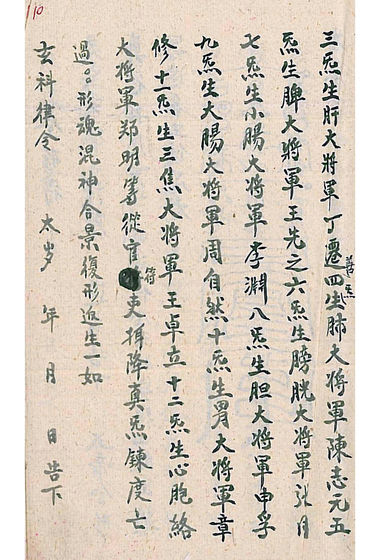 110
三炁生肝大將軍丁遷善四炁生肺大將軍陳志元五
炁生脾大將軍王先之六炁生膀胱大將軍張月
七炁生小腸大将軍李淵八炁生胆大將軍申孚
九炁生大腸大将軍周自然十炁生胃大将軍章
修十一炁生三焦大將軍王卓立十二炁生心胞絡
大将軍郑明等從官符吏拜降真炁鍊度亡
過。形魂混神合景復形返生一如
玄科律令 太岁 年 月 日告下